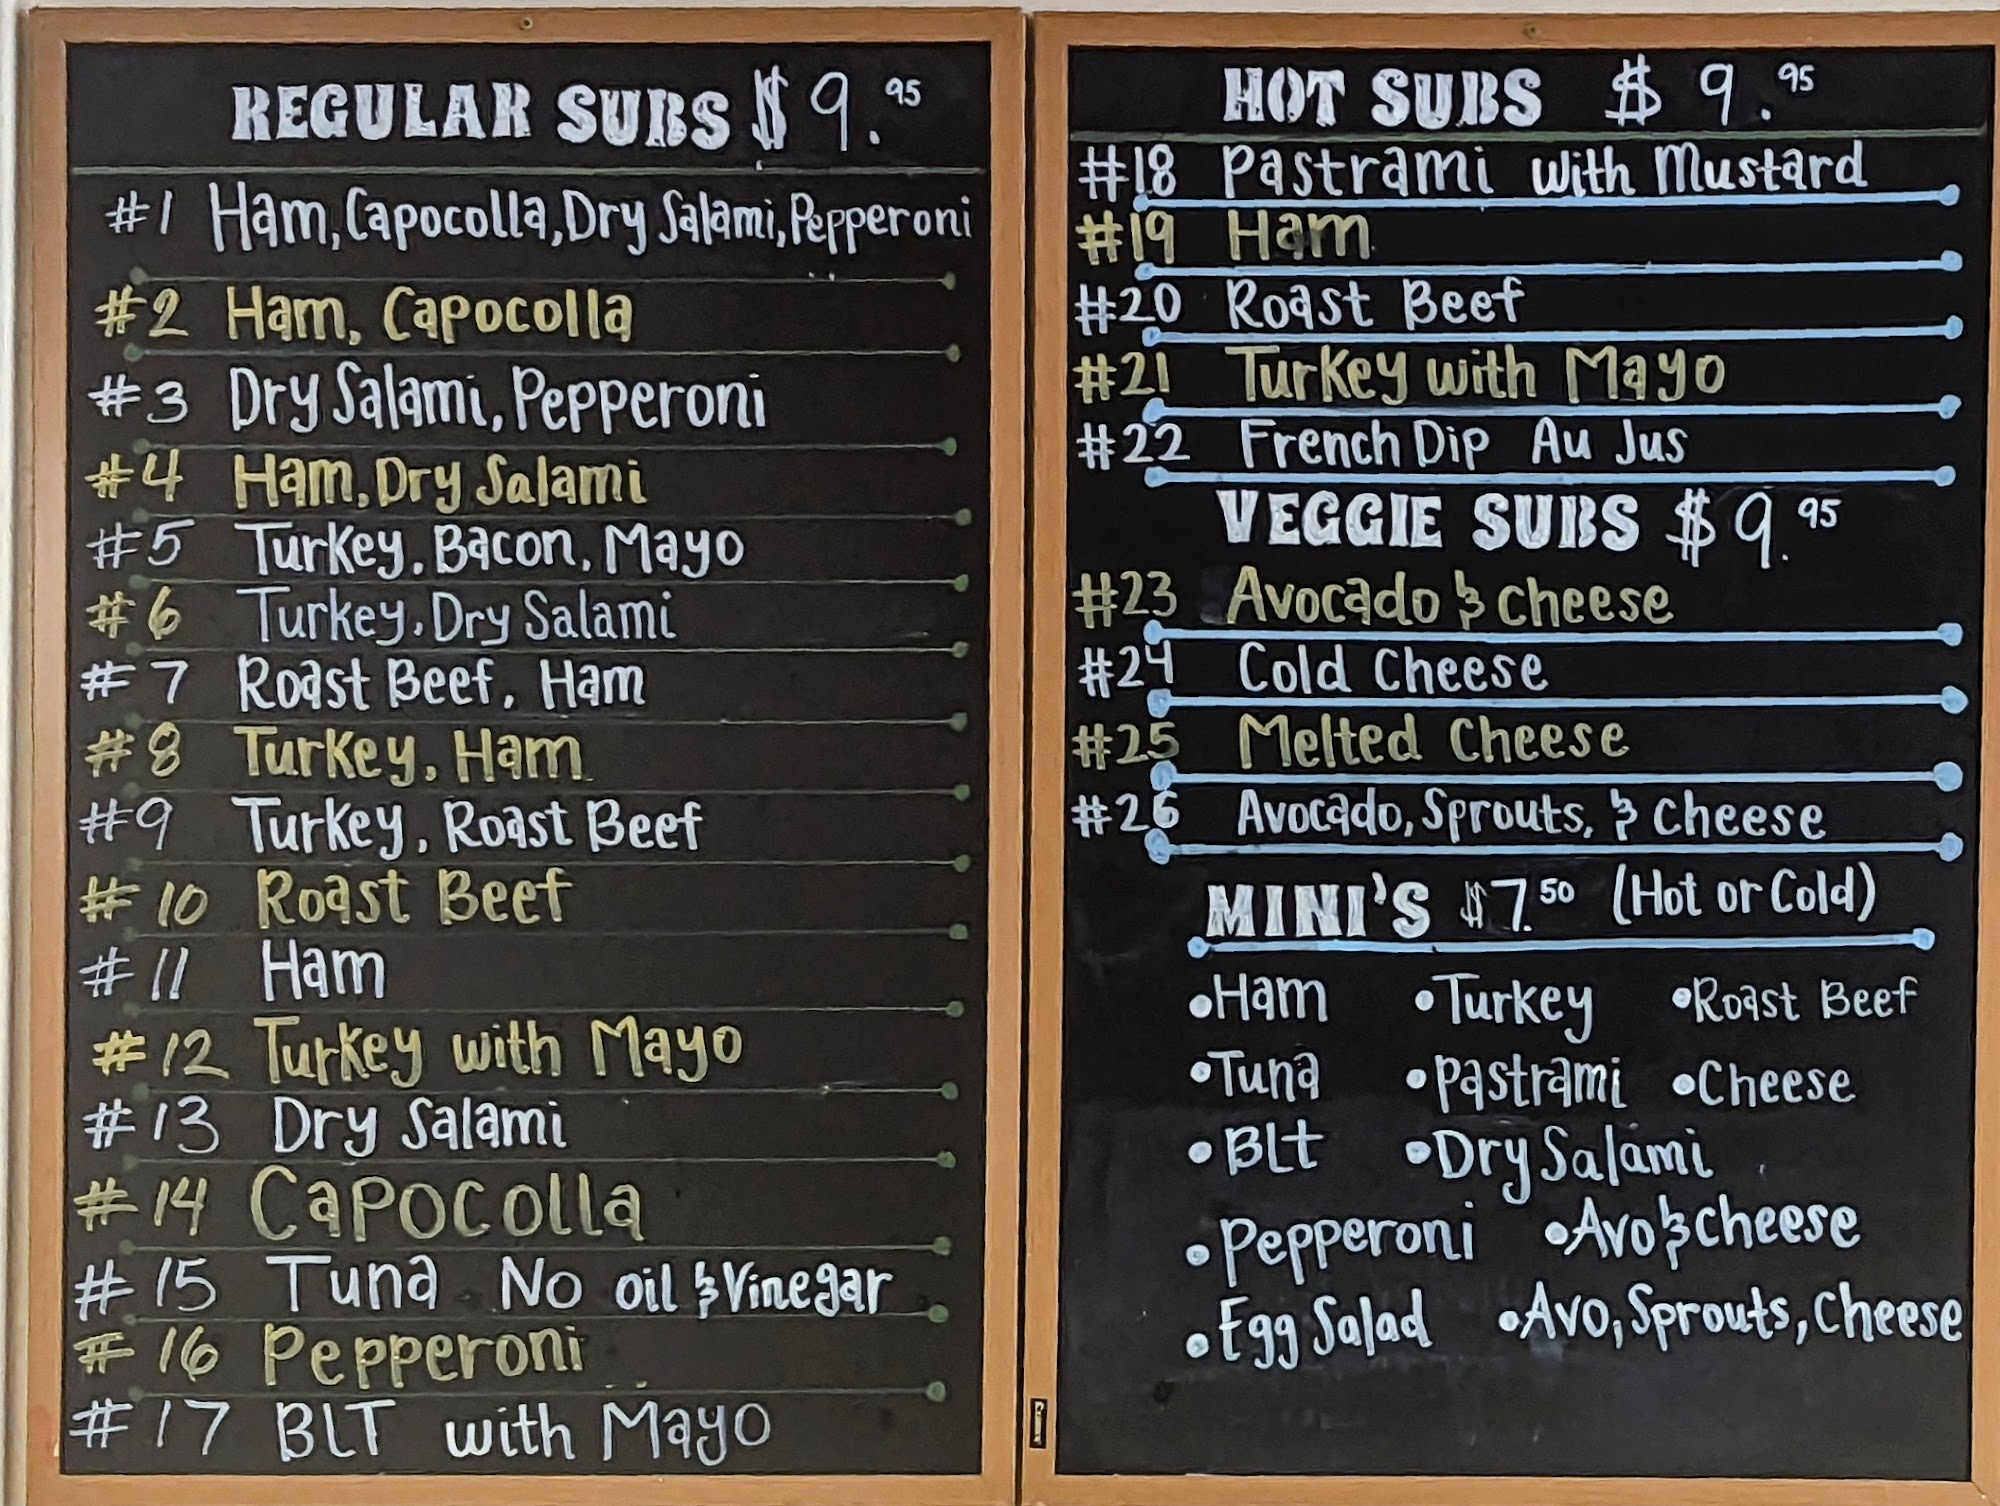 REGULAR SUBS $9.95
#1 Ham, Capocolla, Dry Salami, Pepperoni
#2 Ham, Capocolla
#3 Dry Salami, Pepperoni
#4 Ham, Dry Salami
#5 Turkey, Bacon, Mayo
#6 Turkey, Dry Salami
#7 Roast Beef, Ham
#8 Turkey, Ham
#9 Turkey, Roast Beef
#10 Roast Beef
#11 Ham
#12 Turkey with Mayo
#13 Dry Salami
#14 Capocolla
#15 Tuna No oil & Vinegar
#16 Pepperoni
#17 BLT with Mayo
HOT SUBS $9.95
#18 Pastrami with Mustard
#19 Ham
#20 Roast Beef
#21 Turkey with Mayo
#22 French Dip Au Jus
VEGGIE SUBS $9.95
#23 Avocado & Cheese
#24 Cold Cheese
#25 Melted Cheese
#26 Avocado, Sprouts, & Cheese
MINI'S $7.50 (Hot or Cold)
•Ham •Turkey •Roast Beef
•Tuna •Pastrami •Cheese
•BLT •Dry Salami
•Pepperoni •Avo & Cheese
•Egg Salad •Avo, Sprouts, Cheese